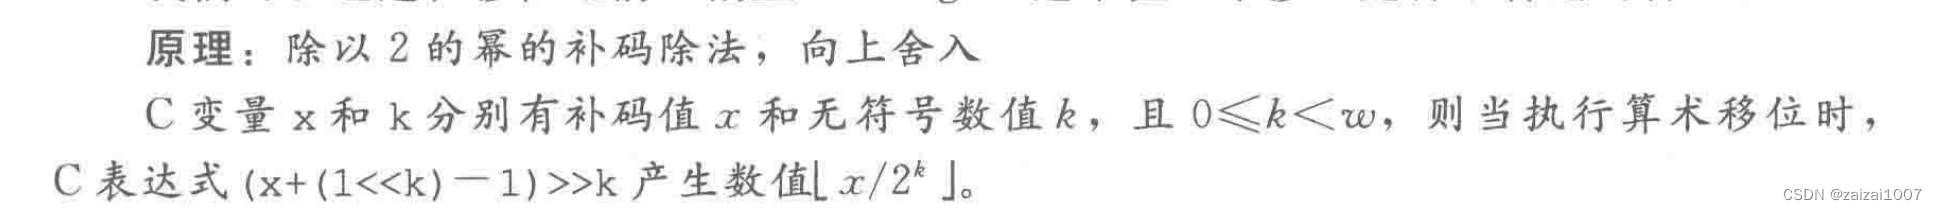 原理：除以 2 的幂的补码除法，向上舍入
C 变量 x 和 k 分别有补码值 x 和无符号数值 k，且 0≤k＜w，则当执行算术移位时，
C 表达式 (x+(1<<k)－1)>>k 产生数值⌊ x/2ᵏ ⌋。
CSDN @zaizai1007